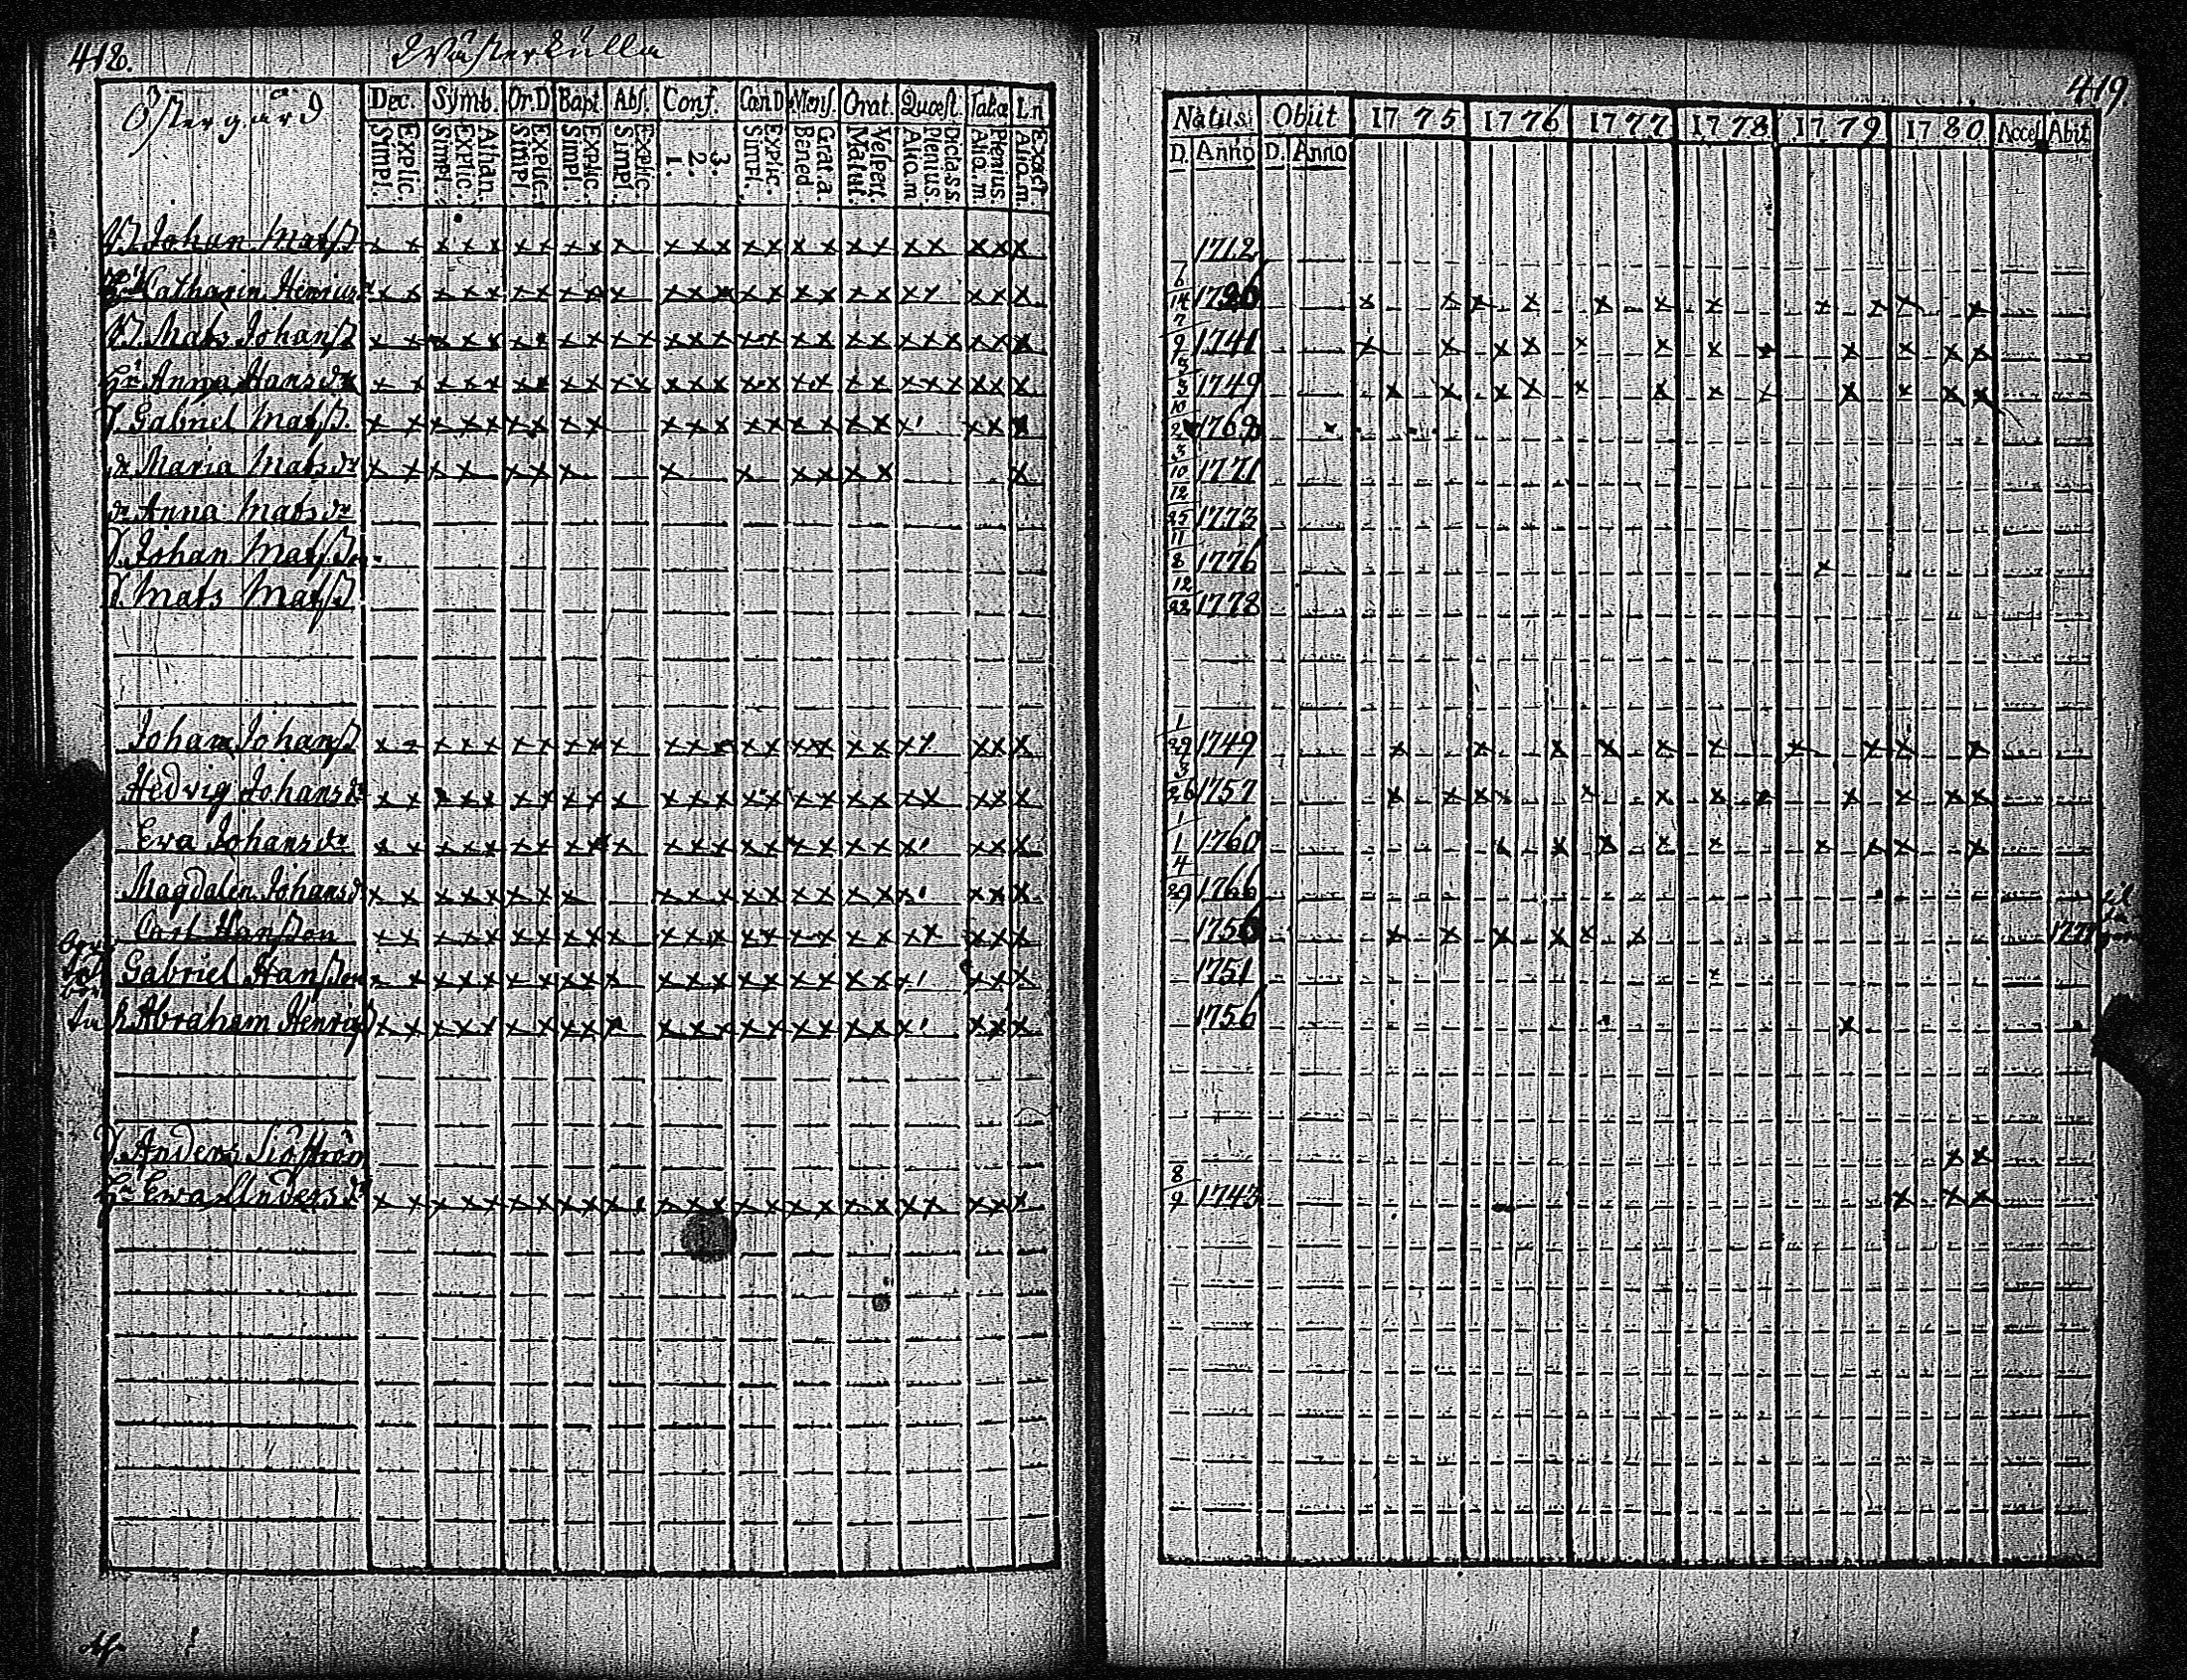 418. Wästerkulla
Östergård Dec. Symb. Or.D Bapt. Abs. Conf. Can D Mens. Orat. Quæst. Tabæ L.n
Simpl. Explic. Simpl. Explic. Athan. Simpl. Explic. Simpl. Explic. Simpl. Explic. 1. 2. 3. Simpl. Explic. Bened. Grat.a. Matut. Vespert. Aliq.m Plenius Dicta s.s. Aliq.m Plenius Aliq.m Exact.
Johan Matsß x x x x x x x x x x x x x x x x x x x x x x x x
Catharin Henricsdr x x x x x x x x x x x x x x x x x x x x x x x x
Mats Johansß x x x x x x x x x x x x x x x x x x x x x x x x x x
Hr Anna Hansdr x x x x x x x x x x x x x x x x x x x x x x x x x x
Gabriel Matsß. x x x x x x x x x x x x x x x x x x x x x x x
dr Maria Matsdr x x x x x x x x x x x x x x
dr Anna Matsdr
Johan Matsß
Mats Matsß
Johan Johansß x x x x x x x x x x x x x x x x x x x x x x x x
Hedvig Johansdr x x x x x x x x x x x x x x x x x x x x x x x x
Eva Johansdr x x x x x x x x x x x x x x x x x x x x x x x
Magdalen Johansdr x x x x x x x x x x x x x x x x x x x x x
Carl Hansson x x x x x x x x x x x x x x x x x x x x x x x x
Gabriel Hansson x x x x x x x x x x x x x x x x x x x x x x x
Abraham Henricsß x x x x x x x x x x x x x x x x x x x x x x x
Anders
Hr Ewa Andersdr x x x x x x x x x x x x x x x x x x x x x x x x x
419
Natus Obiit 1775 1776 1777 1778 1779 1780 Acces Abit
D. Anno D. Anno
1712
6/14 1720 x x x x x x x x x x x
7/9 1741 x x x x x x x x x x x x
3/3 1749 x x x x x x x x x x x x
10/2 1769
3/10 1771
12/25 1773
11/8 1776 x
12/22 1778
1/29 1749 x x x x x x x x x x
3/26 1757 x x x x x x x x x x x x
1/1 1760 x x x x x x x x x
4/29 1766
1756 x x x x x x 1777
1751 x
1756 x
x x
8/9 1743 x x x